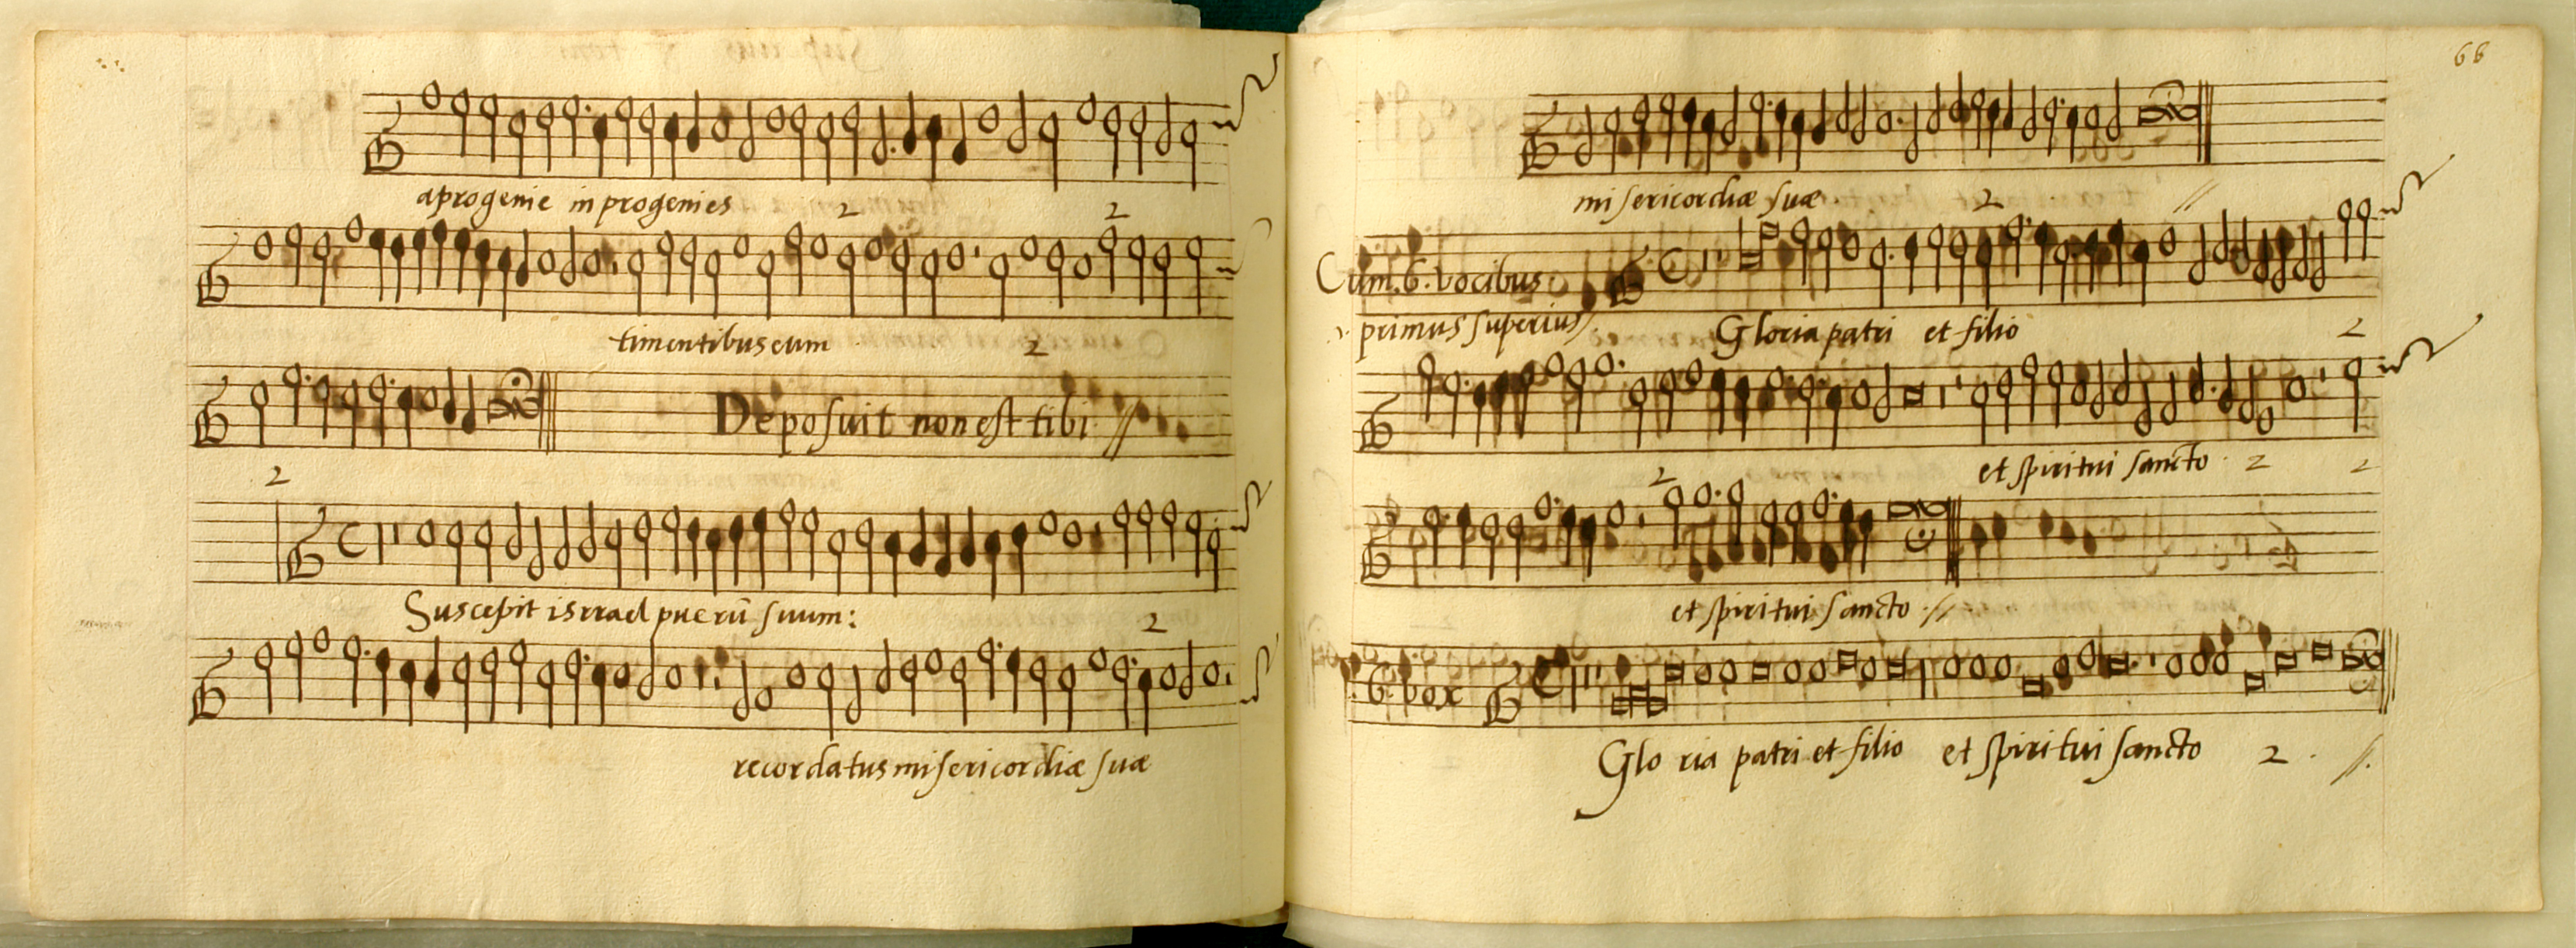 aprogenie in progenies
2 2
timentibus eum 2
Deposuit non est tibi //
2
Suscepit isrrael puerū suum:
2
recordatus misericordiæ suæ
68
misericordiæ suæ 2 //
Cum. 6. vocibus
primus superius. Gloria patri et filio 2
et spiritui sancto 2 2
2
et spiritui sancto //
6. vox
Glo ria patri et filio et spiritui sancto 2 //.